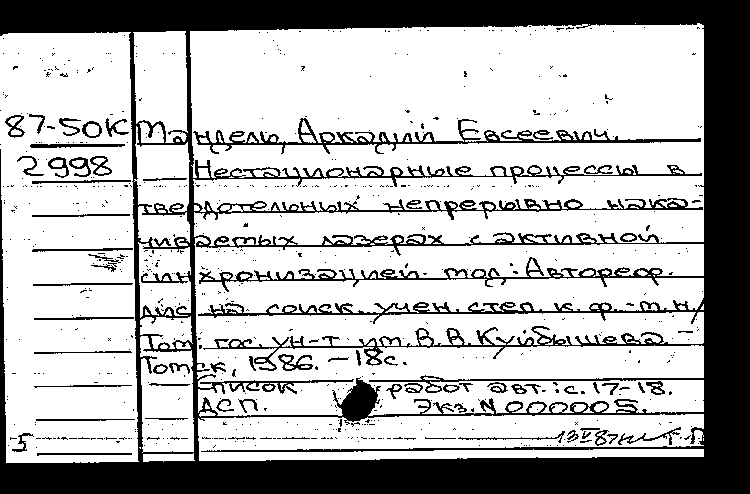 87-50К Мандель, Аркадий Евсеевич.
2998 Нестационарные процессы в
твердотельных непрерывно нака-
чиваемых лазерах с активной
синхронизацией мод: Автореф.
дис на соиск. учен. степ. к. ф.-м.н/
Том. гос. ун-т им. В.В. Куйбышева. –
Томск, 1986. – 18с.
Список работ авт.: с. 17-18.
ДСП. Экз. N 000005.
5